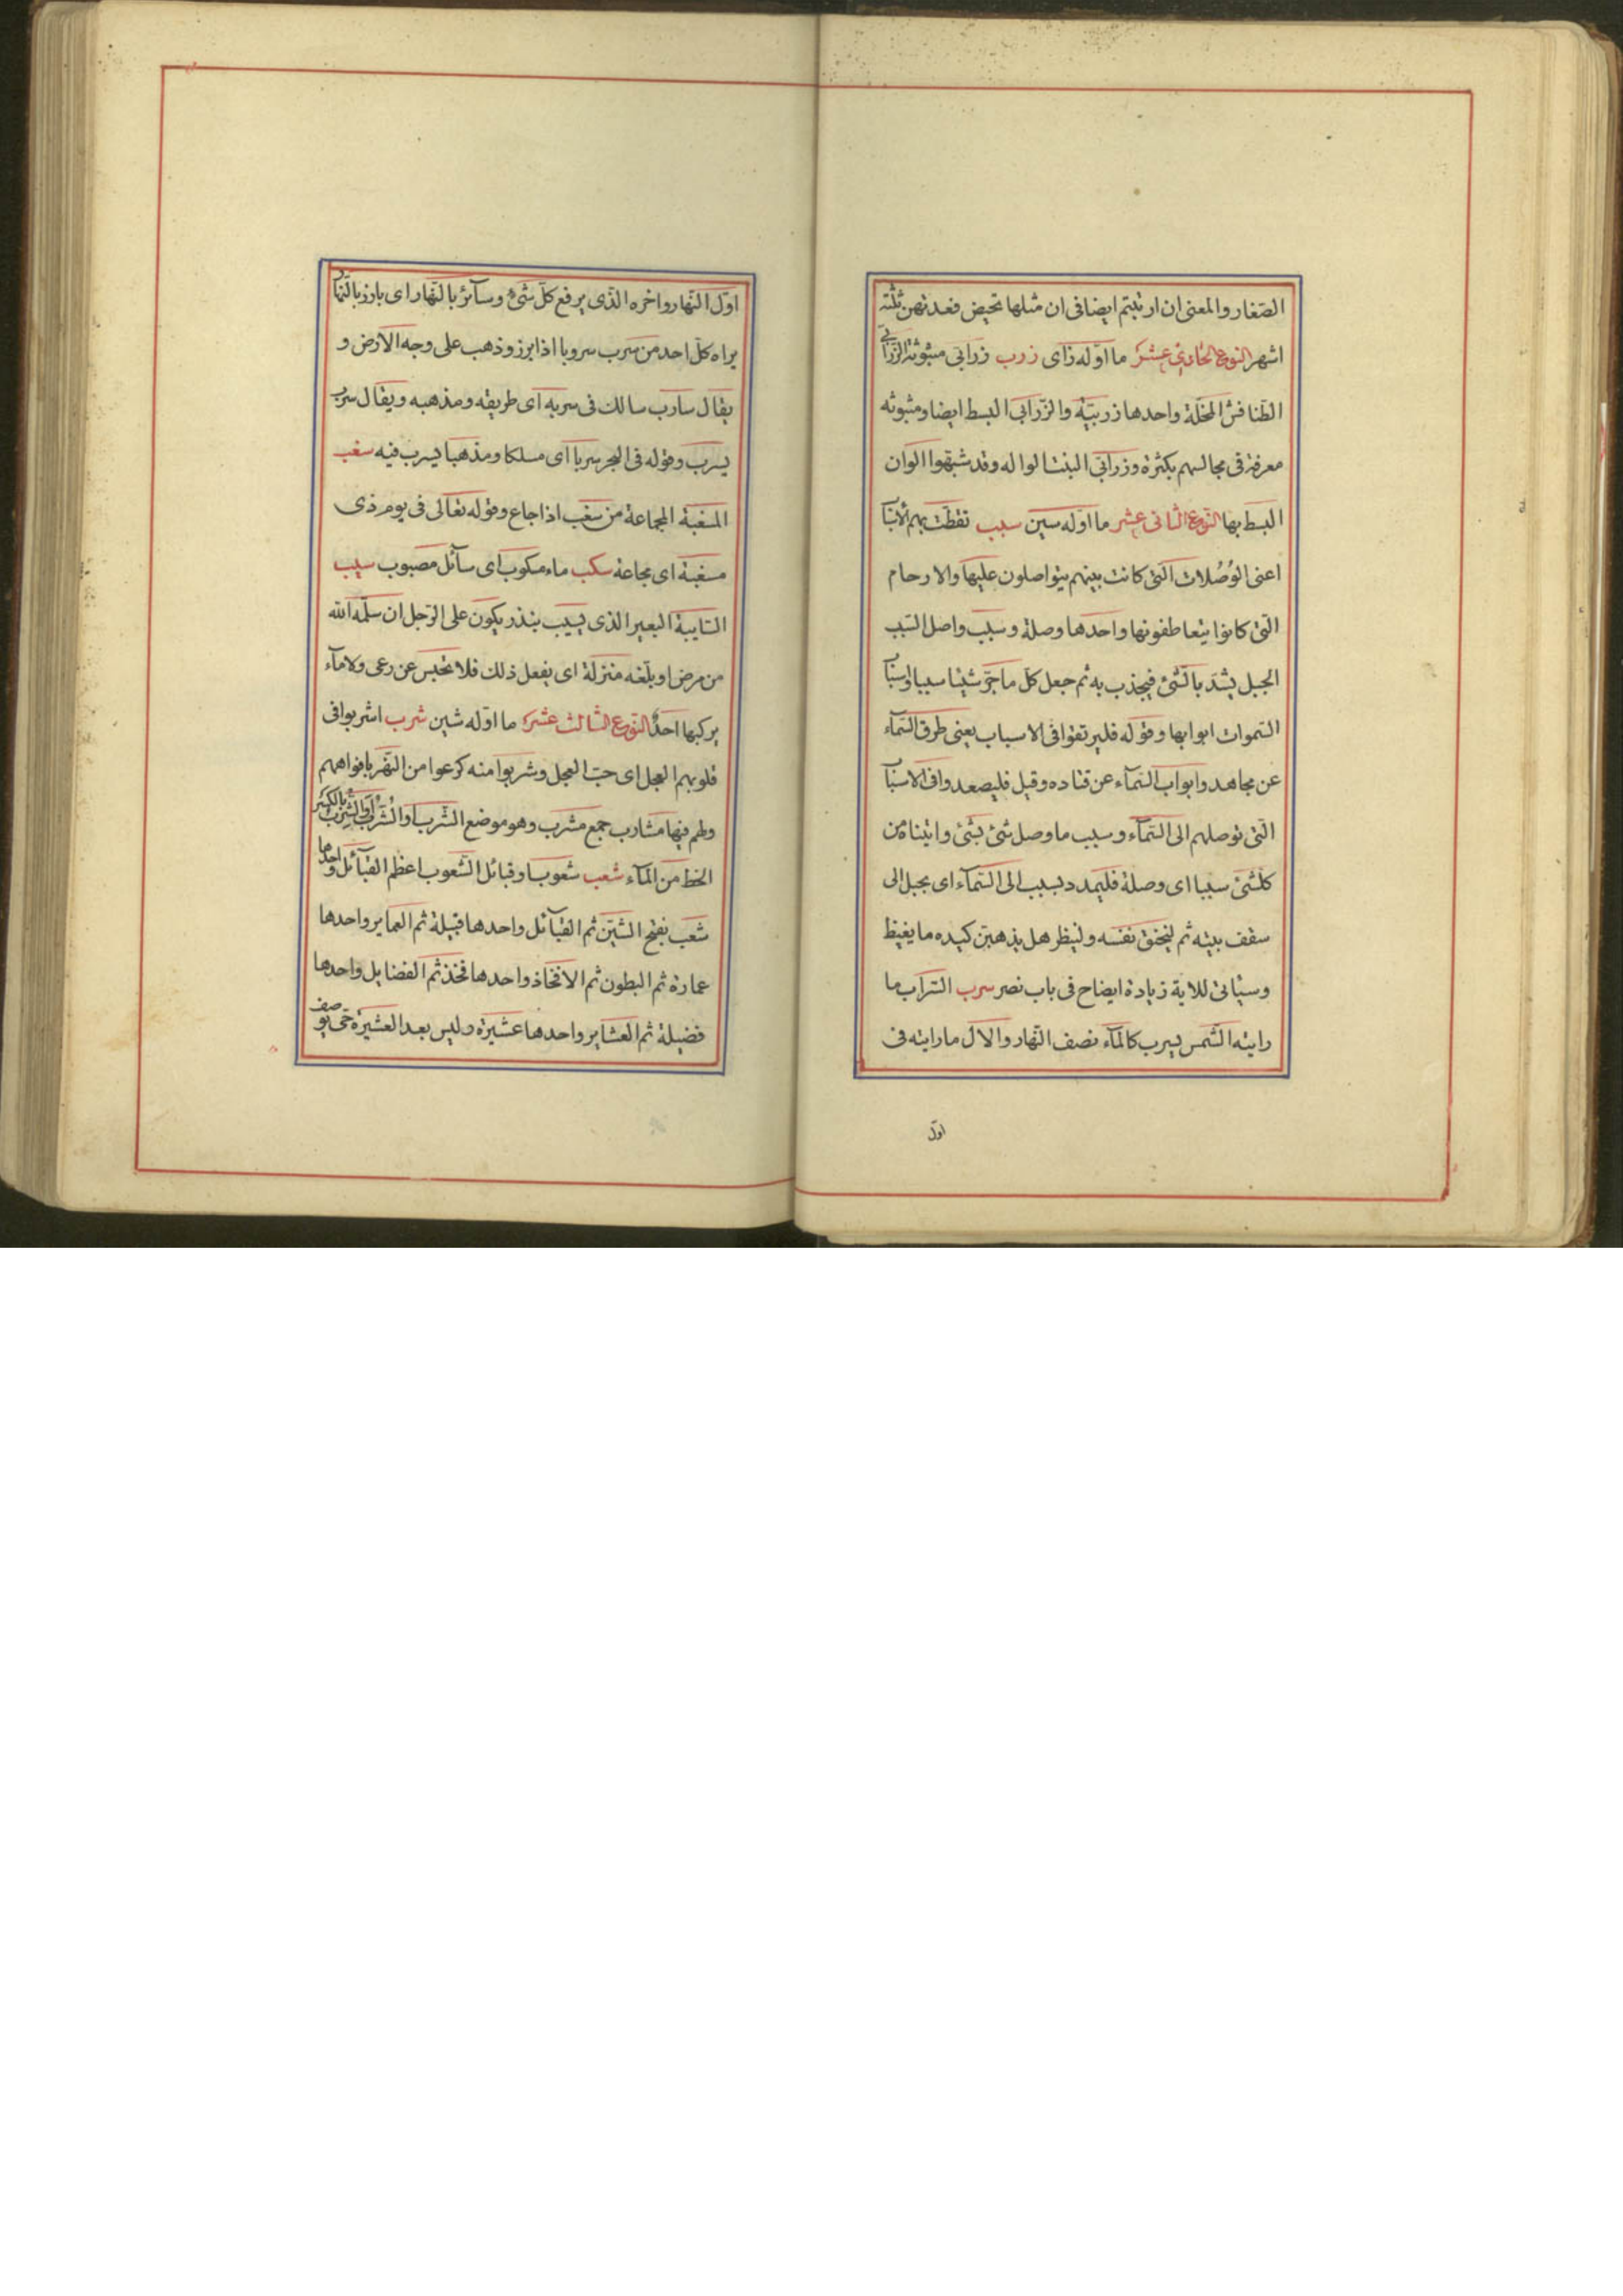 الصغار والمعنى ان ارتبتم ايضا فى ان مثلها تحيض فعدتهن ثلثة
اشهر النوع الحادى عشر ما اوله زاى زرب زرابى مبثوثة الزرابى
الطنافس المخملة واحدها زربيّة والزرابى البسط ايضا ومبثوثه
مفرقة فى مجالسهم بكثرة وزرابى البنت الواله وقد شبهوا الوان
البسط بها النوع الثانى عشر ما اوله سين سبب تقطعت بهم الاسباب
اعنى الوُصُلات التى كانت بينهم يتواصلون عليها والارحام
التى كانوا يتعاطفونها واحدها وصلة وسبب واصل السبب
الحبل يشد بالشئ فيجذب به ثم جعل كل ما جرّ شيئا سببا واسباب
السموات ابوابها وقوله فليرتقوا فى الاسباب يعنى طرق السمآء
عن مجاهد وابواب السمآء عن قتاده وقيل فليصعدوا فى الاسباب
التى توصلهم الى السمآء وسبب ما وصل شئ بشئ واتيناه من
كلشئ سببا اى وصلة فليمدد بسبب الى السمآء اى بحبل الى
سقف بيته ثم ليخنق نفسه ولينظر هل يذهبن كيده ما يغيظ
وسيأتى للاية زيادة ايضاح فى باب نصر سرب السراب ما
رايته الشمس يسرب كالمآء نصف النهار والال ما رايته فى
اول
اول النهار واخره الذى يرفع كل شئ وسائر بالنهار اى بارز بالنهار
يراه كل احد من سرب سروبا اذا برز وذهب على وجه الارض و
يقال سارب سالك فى سربه اى طريقه ومذهبه ويقال سرب
يسرب وقوله فى البحر سربا اى مسلكا ومذهبا يسرب فيه سغب
المسغبة المجاعة من سغب اذا جاع وقوله تعالى فى يوم ذى
مسغبة اى مجاعة سكب ماء مسكوب اى سآئل مصبوب سيب
السايبة البعير الذى يسيب بنذر يكون على الرجل ان سلمه الله
من مرض او بلغه منزلة اى يفعل ذلك فلا تحبس عن رعى ولا مآء
يركبها احد النوع الثالث عشر ما اوله شين شرب اشربوا فى
قلوبهم العجل اى حبّ العجل وشربوا منه كرعوا من النهر بافواههم
ولهم فيها مشارب جمع مشرب وهو موضع الشرب او الشرب والشرب بالكسر
الحظ من المآء شعب شعوبا وقبائل الشعوب اعظم القبآئل واحدها
شعب بفتح الشين ثم القبآئل واحدها قبيلة ثم العماير واحدها
عمارة ثم البطون ثم الافخاذ واحدها فخذ ثم الفضايل واحدها
فضيلة ثم العشاير واحدها عشيرة وليس بعد العشيرة حى يوصف